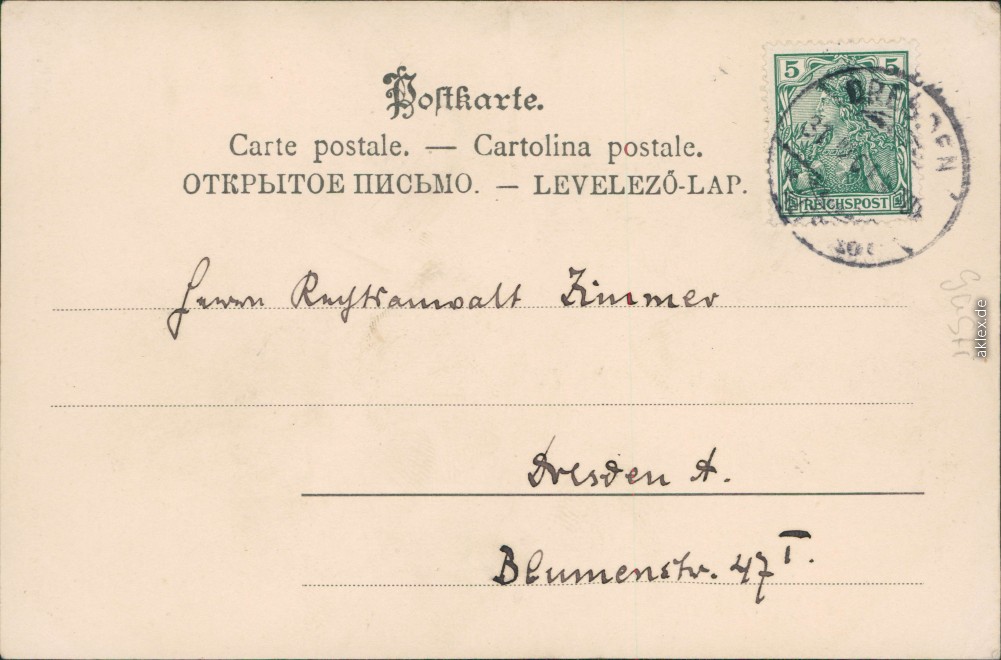 Postkarte.
Carte postale. — Cartolina postale.
ОТКРЫТОЕ ПИСЬМО. — LEVELEZŐ-LAP.
5 5
REICHSPOST
DRESDEN
Herrn Rechtsanwalt Zimmer
Dresden A.
Blumenstr. 47 I.
aklex.de